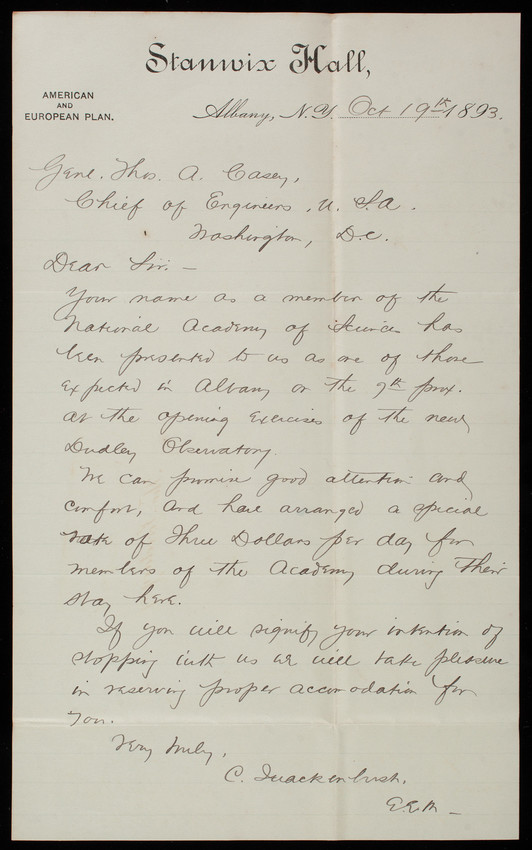 Stanwix Hall,
AMERICAN
AND
EUROPEAN PLAN.
Albany, N.Y. Oct 19th 1893.
Genl. Thos. A. Casey,
Chief of Engineers, U.S.A.
Washington, D.C.
Dear Sir:—
Your name as a member of the
National Academy of Sciences has
been presented to us as one of those
expected in Albany on the 7th prox.
at the opening exercises of the new
Dudley Observatory.
We can promise good attention and
comfort, and have arranged a special
rate of Three Dollars per day for
members of the Academy during their
stay here.
If you will signify your intention of
stopping with us we will take pleasure
in reserving proper accomodation for
you.
Very truly,
C. Quackenbush.